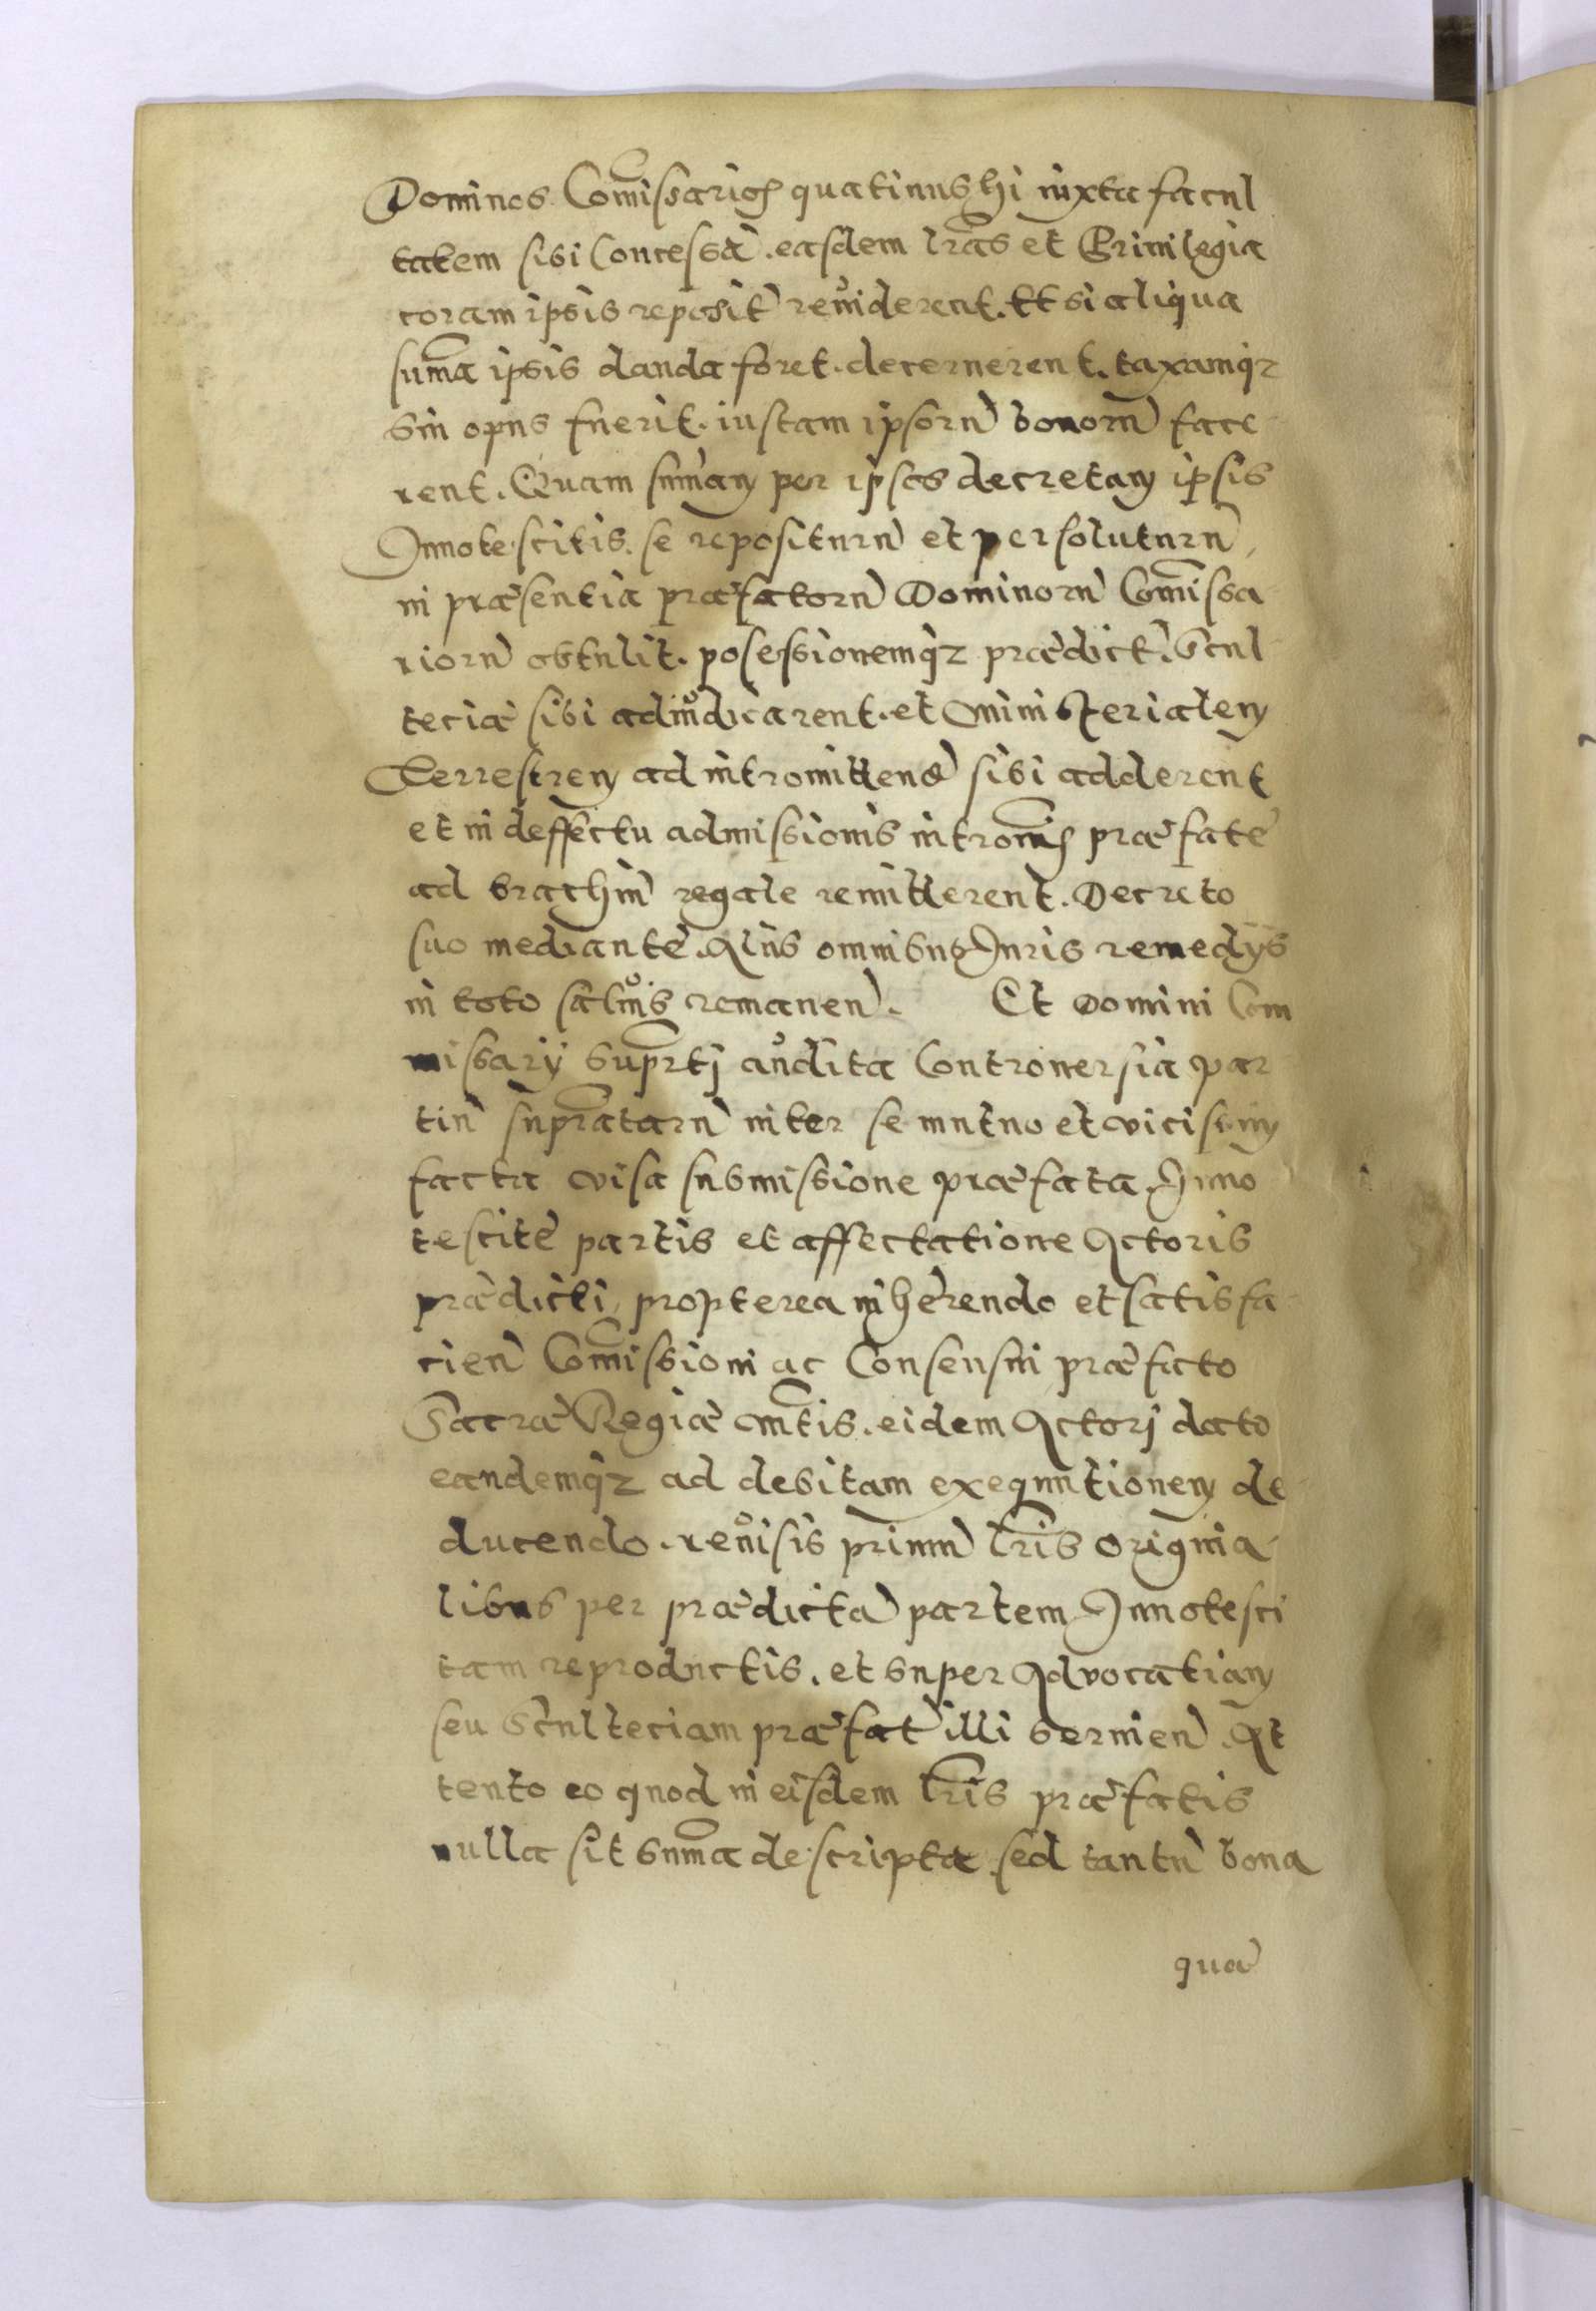 Dominos Com̃issarios quatinus hi iuxta facul
tatem sibi Concessã. easdem lr̃as et Priuilegia
coram ipsis reposit̃ reuiderent. Et si aliqua
sum̃a ipsis danda foret. decernerent. taxamq̃z
Sin opus fuerit. iustam ipsorũ bonorũ face
rent. Quam sum̃am per ipsos decretam ipsis
Innotescitis. se repositurũ et persoluturũ,
in præsentia præfatorũ Dominorũ Com̃issa
riorũ obtulit. posessionemq̃z prædict̃. Scul
teciæ sibi adiudicarent. et Ministerialem
Terrestrem ad intromittend̃ sibi adderent
et in deffectu admissionis introm̃is præfatę
ad brachiũ regale remitterent. Decreto
suo mediante. Alijs omnibus Iuris remedys
in toto saluis remanen̄. Et Domini Com
missary supr̃tj audita Controuersia par
tiũ supr̃atarũ inter se mutuo et vicissim
facta visa submissione præfata. Inno
tescitę partis et affectatione Actoris
prædicti, propterea inhęrendo et satisfa
cien̄ Com̃issioni ac Consensui præfato
Sacræ Regiæ M̃tis. eidem Actorj dato
eandemq̃z ad debitam exequutionem de
ducendo. reuisis primũ lr̃is origina
libus per prædictã partem Innotesci
tam reproductis. et super Aduocatiam
seu Scultetiam præfat̃ illi seruien̄. At
tento eo quod in eisdem lr̃is præfatis
nulla sit sum̃a descripta sed tantũ bona
quæ